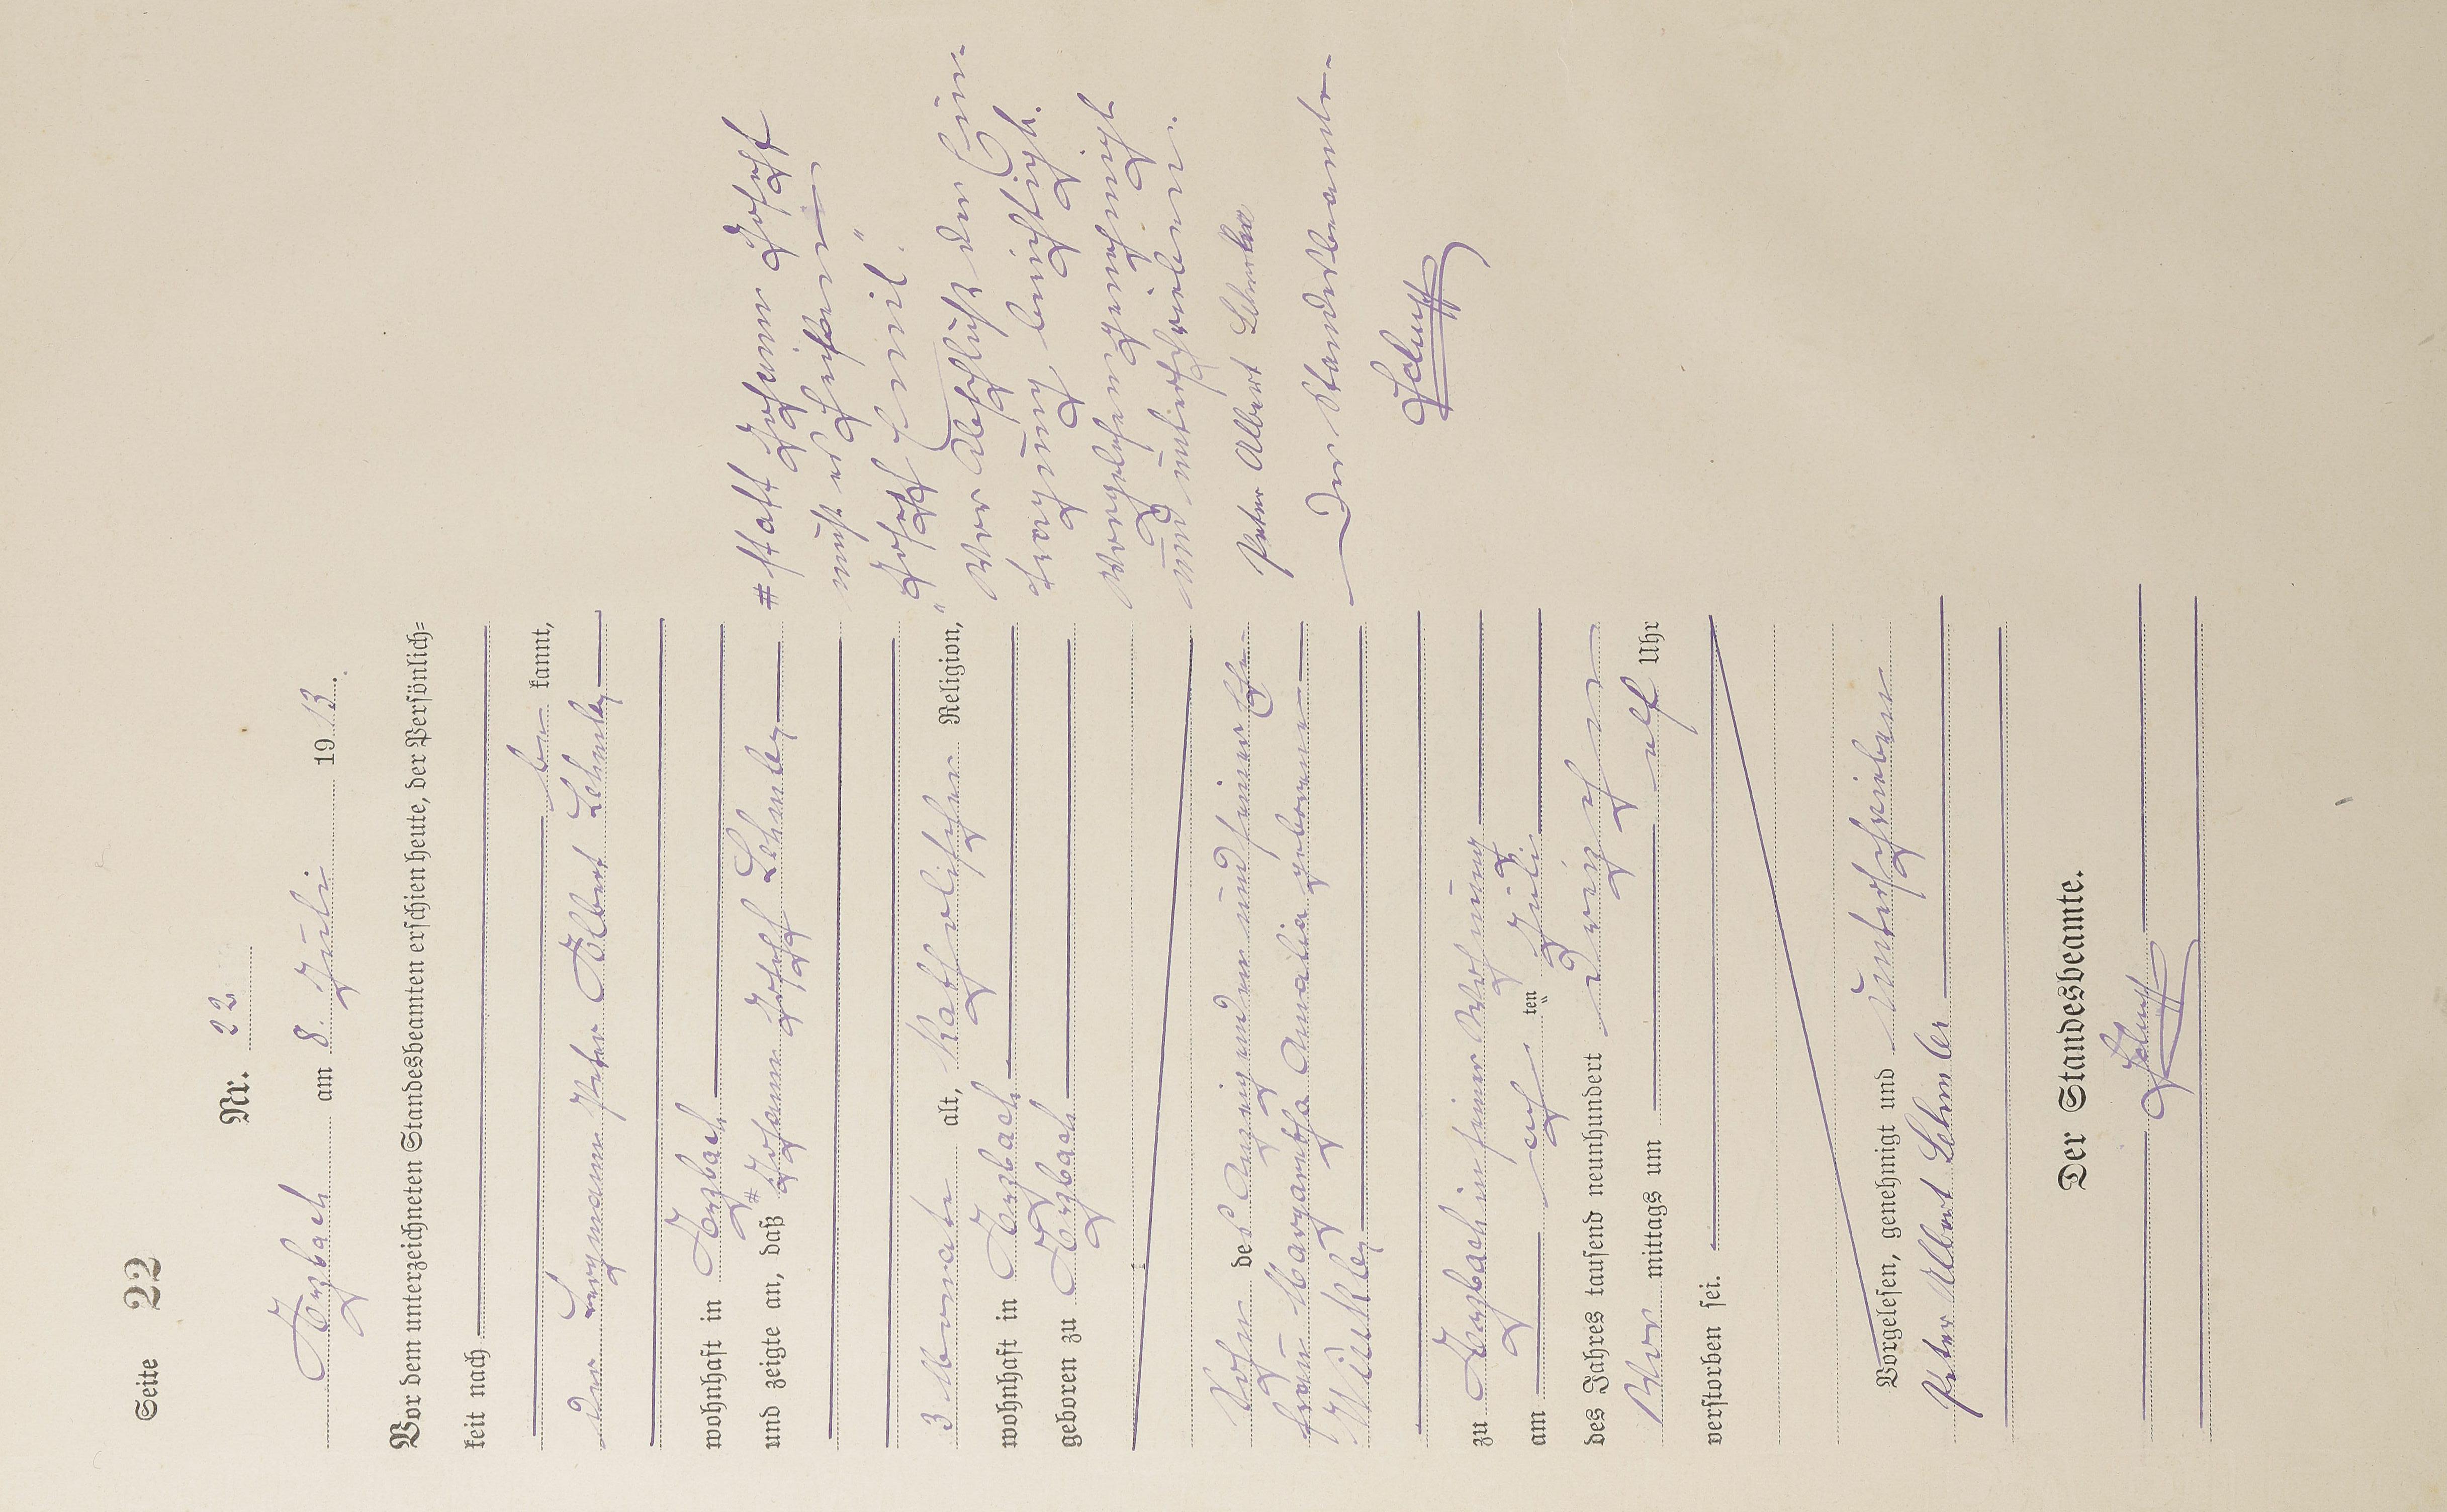 Seite 22
Nr. 22
Arzbach am 8. Juli 1913.
Vor dem unterzeichneten Standesbeamten erschien heute, der Persönlich=
keit nach
be kannt,
der Bergmann Peter Albert Lehmler
wohnhaft in Arzbach
und zeigte an, daß # Johann Josef Lehmler
3 Monate alt, katholischer Religion,
wohnhaft in Arzbach
geboren zu Arzbach
Sohn des Anzeigenden und seiner Ehe-
frau Margaretha Amalia geborene
Winkler
zu Arzbach in seiner Wohnung
am acht ten Juli
des Jahres tausend neunhundert dreizehn
Vor mittags um elf Uhr
verstorben sei.
Vorgelesen, genehmigt und unterschrieben
Peter Albert Lehmler
Der Standesbeamte.
# statt Johann Josef
muß es heißen
„Josef Emil“.
Vor Abschluß der Ein-
tragung berichtigt.
Vorgelesen genehmigt
und unterschrieben.
Peter Albert Lehmler
Der Standesbeamte.